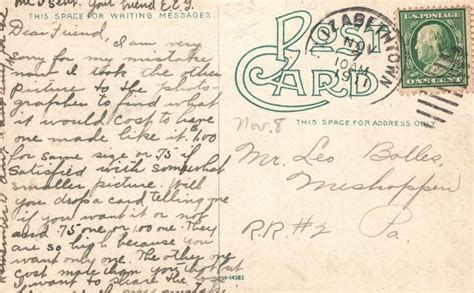 Your friend E.E.J.
THIS SPACE FOR WRITING MESSAGES.
Dear Friend,
I am very
sorry for my mistake
now I took the other
picture to the photo-
grapher to find what
it would cost to have
one made like it. $1.00
for same size or .75 if
satisfied with somewhat
smaller picture. Will
you drop a card telling me
if you want it or not
and .75 one or 1.00 one. They
are so high because you
want only one. The other
cost more than you but
I want to share the loss
POST
CARD
THIS SPACE FOR ADDRESS ONLY.
ELIZABETHTOWN
NOV
10 AM
1911
U.S. POSTAGE
ONE CENT
Nov. 8
Mr. Leo Bolles,
Meshoppen
R.R. #2 Pa.
A-14383